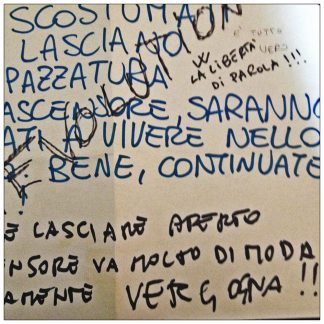 SCOSTUMA
LASCIANO
PAZZATURA
ASCENSORE, SARANNO
ATI A VIVERE NELLO
BENE, CONTINUATE
!
E LASCIARE APERTO
ENSORE VA MOLTO DI MODA
AMENTE VERGOGNA !!
È TUTTO
VERO
W
LA LIBERTÀ
DI PAROLA !!!